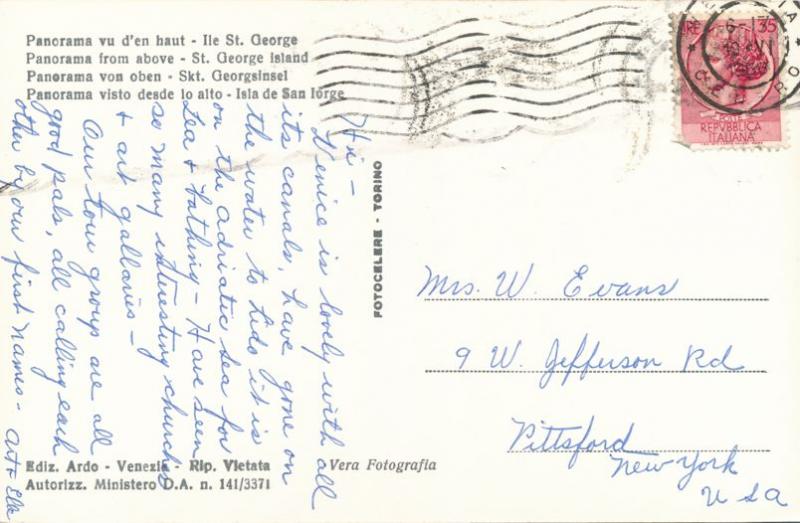 Panorama vu d'en haut - Ile St. George
Panorama from above - St. George island
Panorama von oben - Skt. Georgsinsel
Panorama visto desde lo alto - Isla de San Iorge
Hi -
Venice is lovely with all
its canals, have gone on
the water to Lido it is
on the Adriatic sea for
Sea & bathing - Have seen
so many intrusting churchs
& art gallaries -
Our tour group are all
good pals, all calling each
other by our first names - Art &
FOTOCELERE - TORINO
LIRE 35
POSTE
REPVBBLICA
ITALIANA
Mrs. W. Evans
9 W. Jefferson Rd
Pittsford
New York
USA
Ediz. Ardo - Venezia - Rip. Vietata
Autorizz. Ministero D.A. n. 141/3371
Vera Fotografia